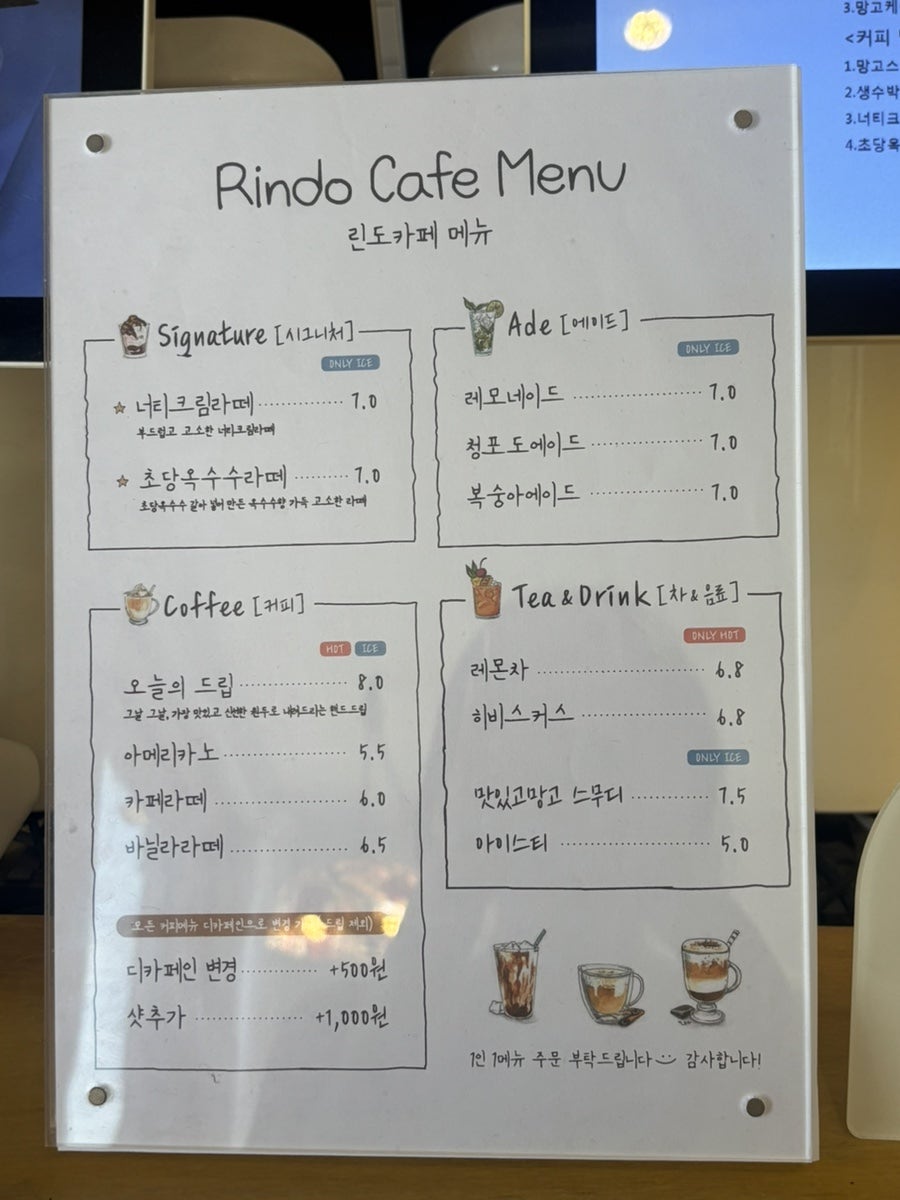 3.망고케
<커피
1.망고스
2.생수박
3.너티크
4.초당옥
Rindo Cafe Menu
린도카페 메뉴
Signature [시그니처]
ONLY ICE
☆ 너티크림라떼 ············ 7.0
부드럽고 고소한 너티크림라떼
☆ 초당옥수수라떼 ········ 7.0
초당옥수수 갈아 넣어 만든 옥수수향 가득 고소한 라떼
Ade [에이드]
ONLY ICE
레모네이드 ············ 7.0
청포도에이드 ············ 7.0
복숭아에이드 ············ 7.0
Coffee [커피]
HOT ICE
오늘의 드립 ············ 8.0
그날 그날, 가장 맛있고 신선한 원두로 내려드리는 핸드드립
아메리카노 ············ 5.5
카페라떼 ············ 6.0
바닐라라떼 ············ 6.5
모든 커피메뉴 디카페인으로 변경 드립 제외)
디카페인 변경 ············ +500원
샷추가 ············ +1,000원
Tea & Drink [차&음료]
ONLY HOT
레몬차 ············ 6.8
히비스커스 ············ 6.8
ONLY ICE
맛있고망고 스무디 ············ 7.5
아이스티 ············ 5.0
1인 1메뉴 주문 부탁드립니다 감사합니다!